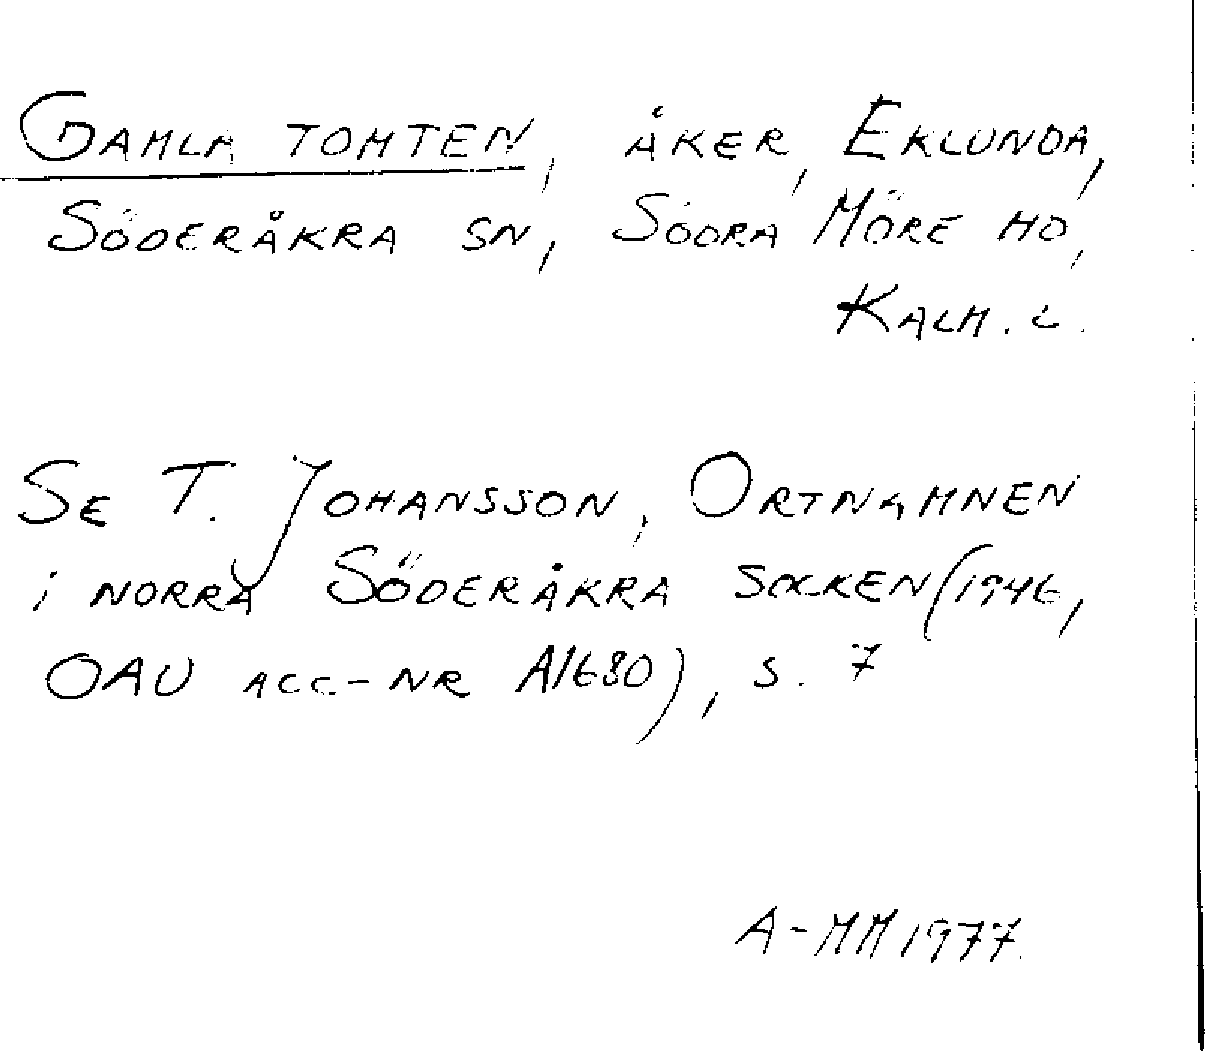 GAMLA TOMTEN, ÅKER, EKLUNDA,
SÖDERÅKRA SN, SÖDRA MÖRE HD,
KALM. L.
SE T. JOHANSSON, ORTNAMNEN
i NORRA SÖDERÅKRA SOCKEN (1946,
OAU ACC-NR A1680), S. 7
A-MM 1977.